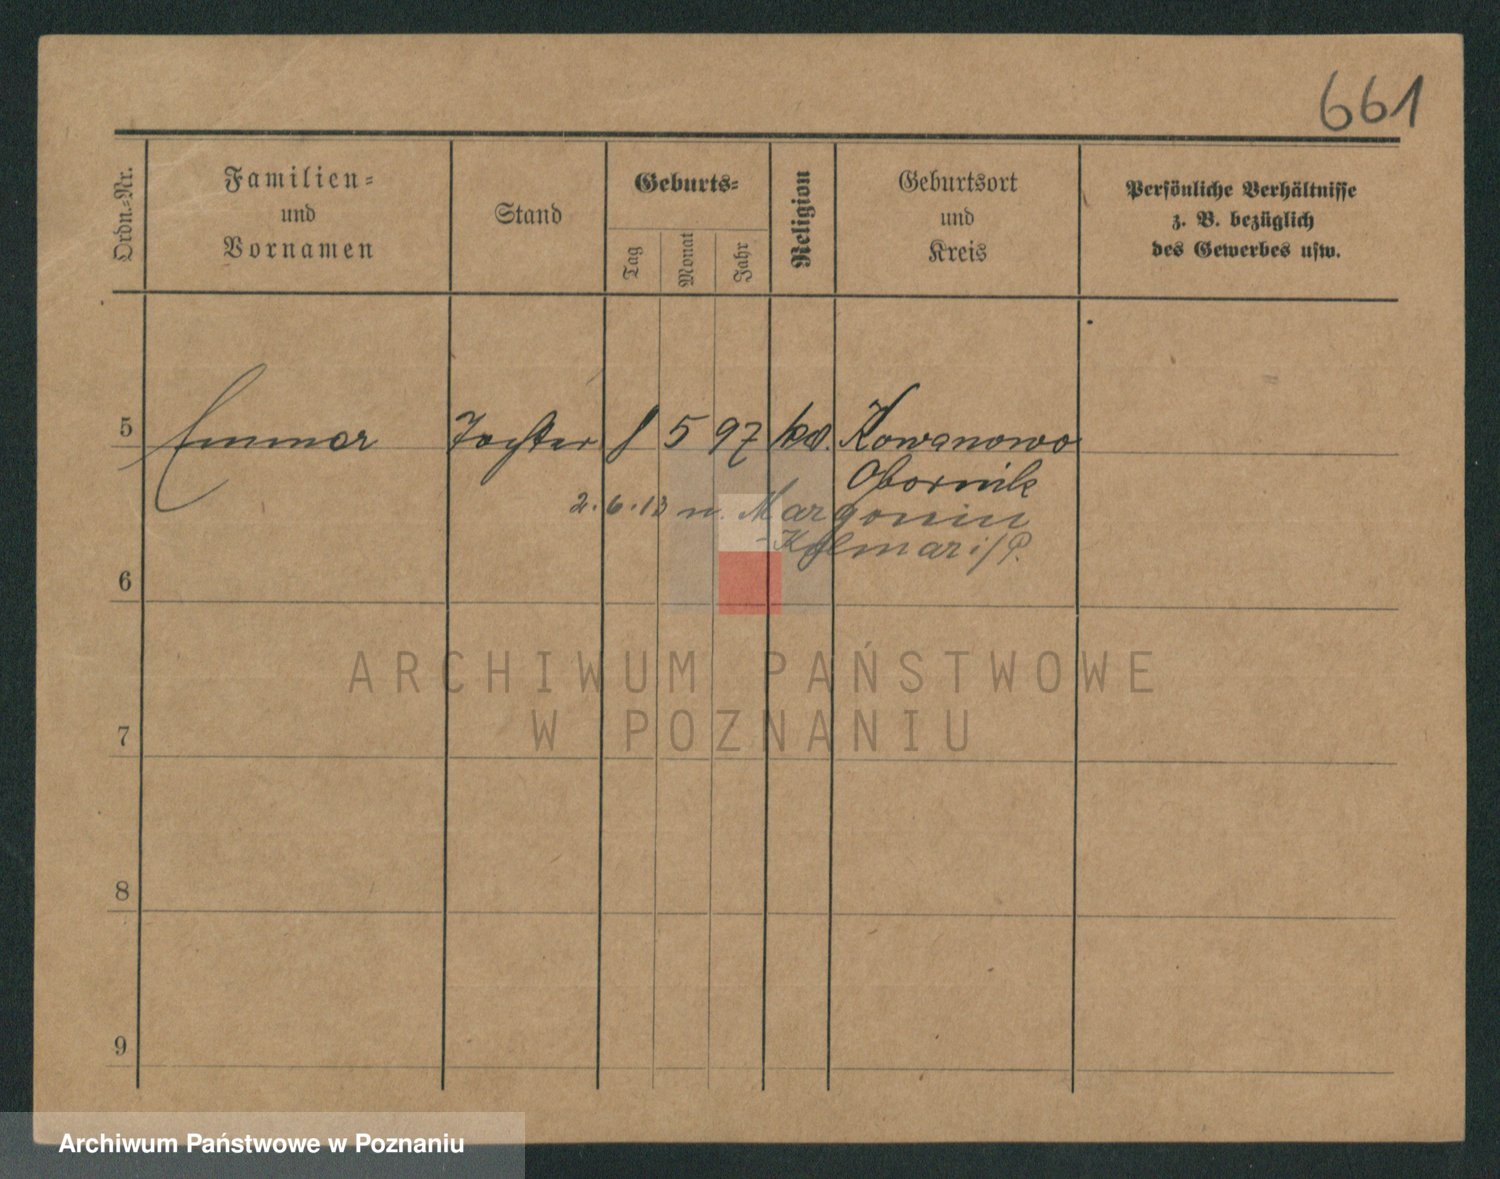 661
Ordn.-Nr.
Familien-
und
Vornamen
Stand
Geburts-
Tag
Monat
Jahr
Religion
Geburtsort
und
Kreis
Persönliche Verhältnisse
z. B. bezüglich
des Gewerbes usw.
5 Emma Tochter 8 5 97 Kowanowo
Obornik
2.6.13 n. Margonin
Kolmar i/P.
6
ARCHIWUM PAŃSTWOWE
W POZNANIU
7
8
9
Archiwum Państwowe w Poznaniu